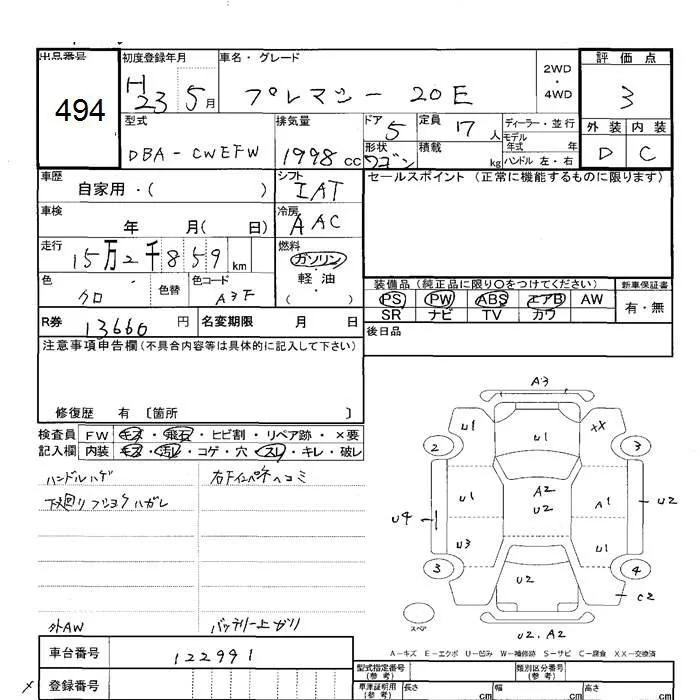 出品番号 初度登録年月 車名・グレード 評価点
494 H23 5月 プレマシー 20E 2WD・4WD 3
型式 排気量 ドア 5 定員 17人 ディーラー・並行 外装 内装
DBA-CWEFW 1998cc 形状 ワゴン 積載 kg モデル年式 年 ハンドル 左・右 D C
車歴 自家用・( ) シフト IAT セールスポイント (正常に機能するものに限ります)
車検 年 月( 日) 冷房 AAC
走行 15万2千859km 燃料 ガソリン・軽油・( )
色 クロ 色替 色コード A3F 装備品 (純正品に限り○をつけてください) 新車保証書
PS PW ABS エアB AW 有・無
SR ナビ TV カワ
R券 13660円 名変期限 月 日 後日品
注意事項申告欄(不具合内容等は具体的に記入して下さい)
修復歴 有 〔箇所 〕
検査員 FW キズ・飛石・ヒビ割・リペア跡・×要
記入欄 内装 キズ・汚レ・コゲ・穴・スレ・キレ・破レ
ハンドルハゲ 右下インパネヘコミ
下廻り フショクハガレ
外AW バッテリー上ガリ
A3
U1 U1 XX
2 3
U1 A2 U2 A1 U2
U4 U3 U1
3 U2 4
C2
スペア U2.A2
A-キズ E-エクボ U-凹み W-補修跡 S-サビ C-腐食 XX-交換済
車台番号 122991 型式指定番号(参考) 類別区分番号(参考)
登録番号 車庫証明用(参考) 長さ cm 幅 cm 高さ cm